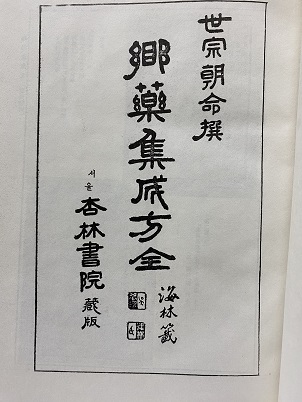 世宗朝命撰
鄕藥集成方全
海林籤
서울 杏林書院 藏版